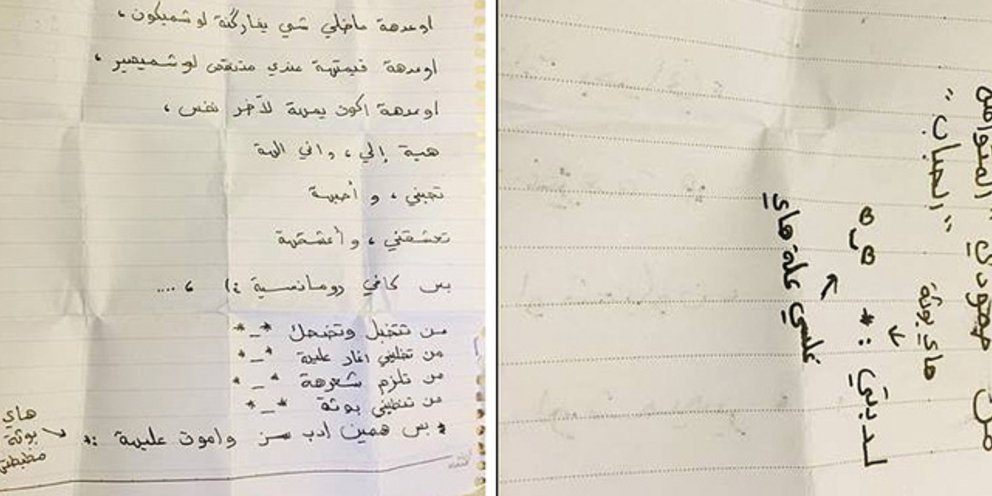 اوعدهة ماخلي شي يفاركنة لو شميكون ،
اوعدهة قيمتهة عندي متنقص لو شميصير ،
اوعدهة اكون يمهة لآخر نفس ،
هية إلي ، واني الهة
تحبني ، و أحبهة
تعشقني ، و أعشقهة
بس كافي رومانسية :) ، ....
من تتخبل وتضحك *_*
من تخليني اغار عليهة *_*
من تلزم شعرهة *_*
من تنطيني بوثة *_*
* بس همين ادب سز واموت عليهة :*
هاي
بوثة
من مهودي " المتواضع
" الحباب "
هاي بوثة
لديتي :*
علة هاي